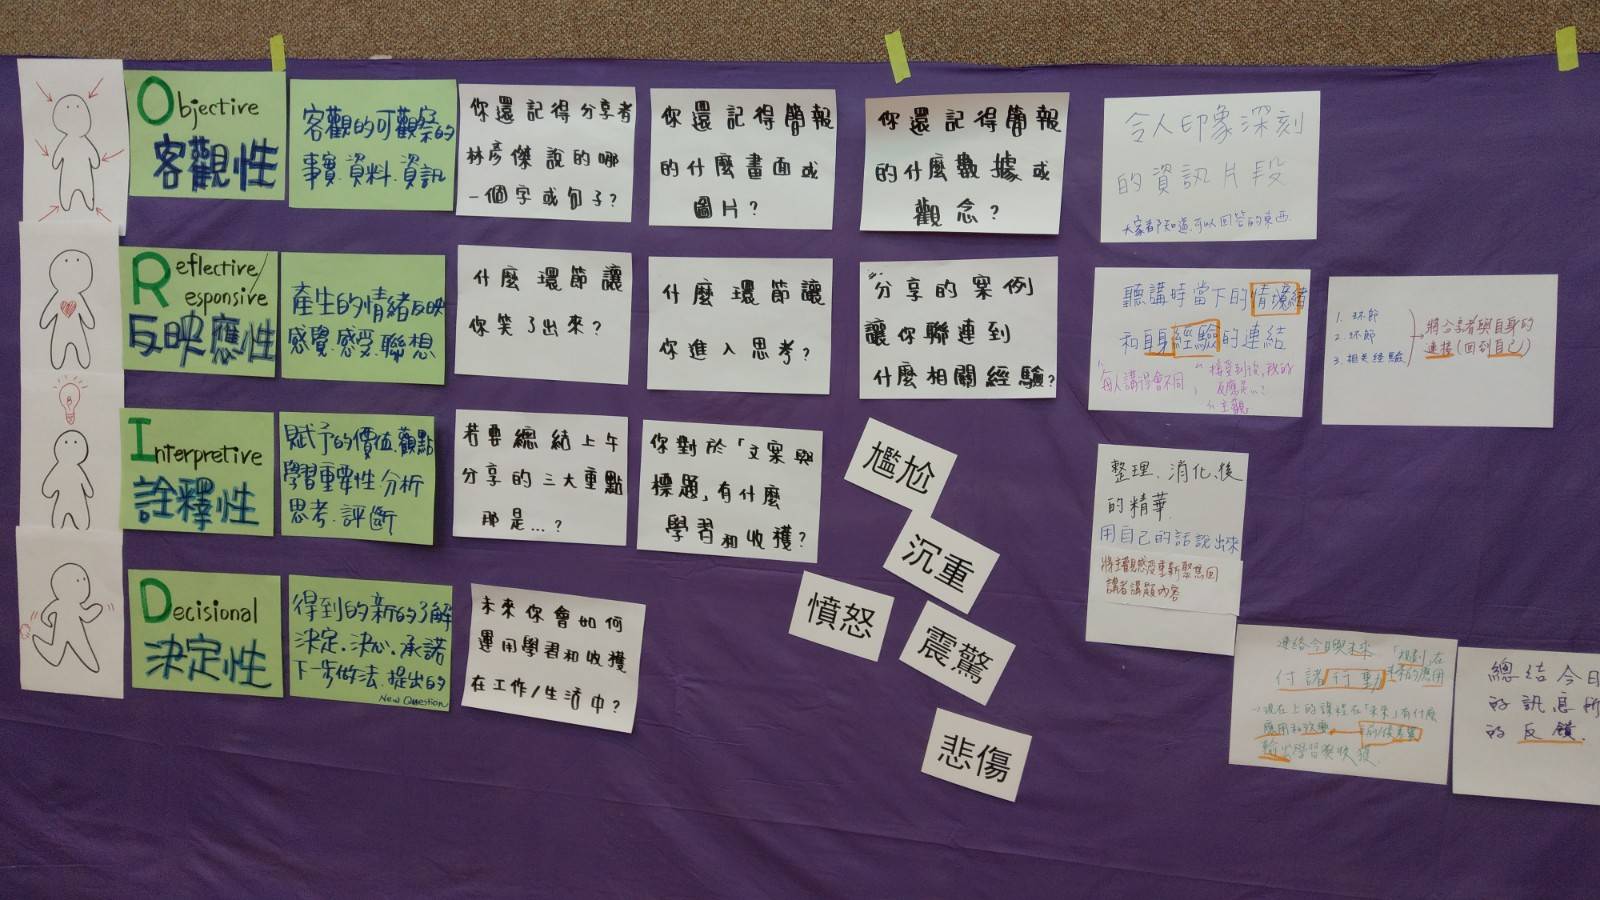 Objective
客觀性
客觀的可觀察的
事實.資料.資訊
你還記得分享者
林彥傑說的哪
一個字或句子?
你還記得簡報
的什麼畫面或
圖片?
你還記得簡報
的什麼數據或
觀念?
令人印象深刻
的資訊片段
大家都知道,可以回答的東西
Reflective/
Responsive
反映應性
產生的情緒反映
感覺.感受.聯想
什麼環節讓
你笑了出來?
什麼環節讓
你進入思考?
分享的案例
讓你聯連到
什麼相關經驗?
聽講時當下的情緒
和自身經驗的連結
每人講得會不同
主觀
1. 环节
2. 环节
3. 相关經驗
將分享者與自身的
連接(回到自己)
Interpretive
詮釋性
賦予的價值.觀點
學習重要性.分析
思考.評斷
若要總結上午
分享的三大重點
那是...?
你對於「文案與
標題」有什麼
學習和收穫?
尷尬
沉重
憤怒
震驚
悲傷
整理、消化後
的精華
用自己的話說出來
將主觀感受重新聚焦回
講者講題內容
Decisional
決定性
得到的新的了解
決定.決心.承諾
下一步做法.提出的
New Question
未來你會如何
運用學習和收穫
在工作/生活中?
連結今日與未來
付諸行動
總結今日
的訊息所
的反饋.